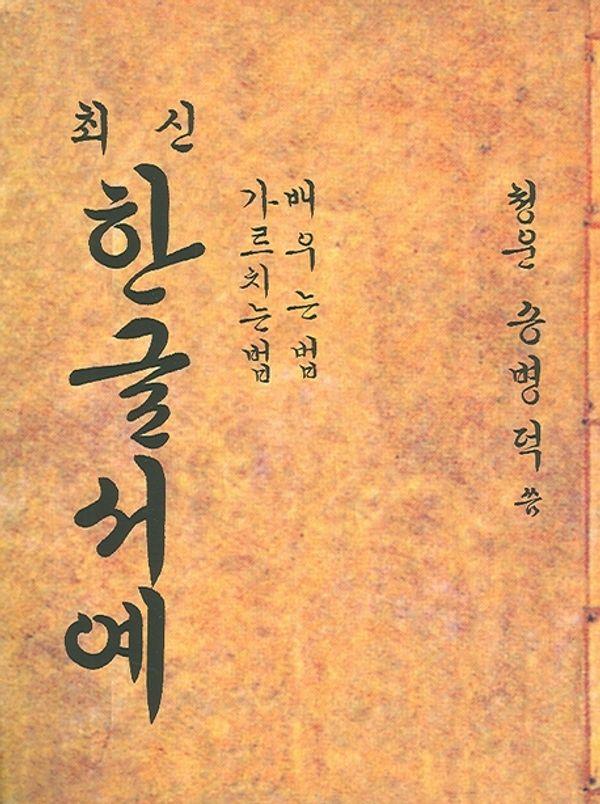 최 신
한글서예
배우는법
가르치는법
청운 승병덕 씀